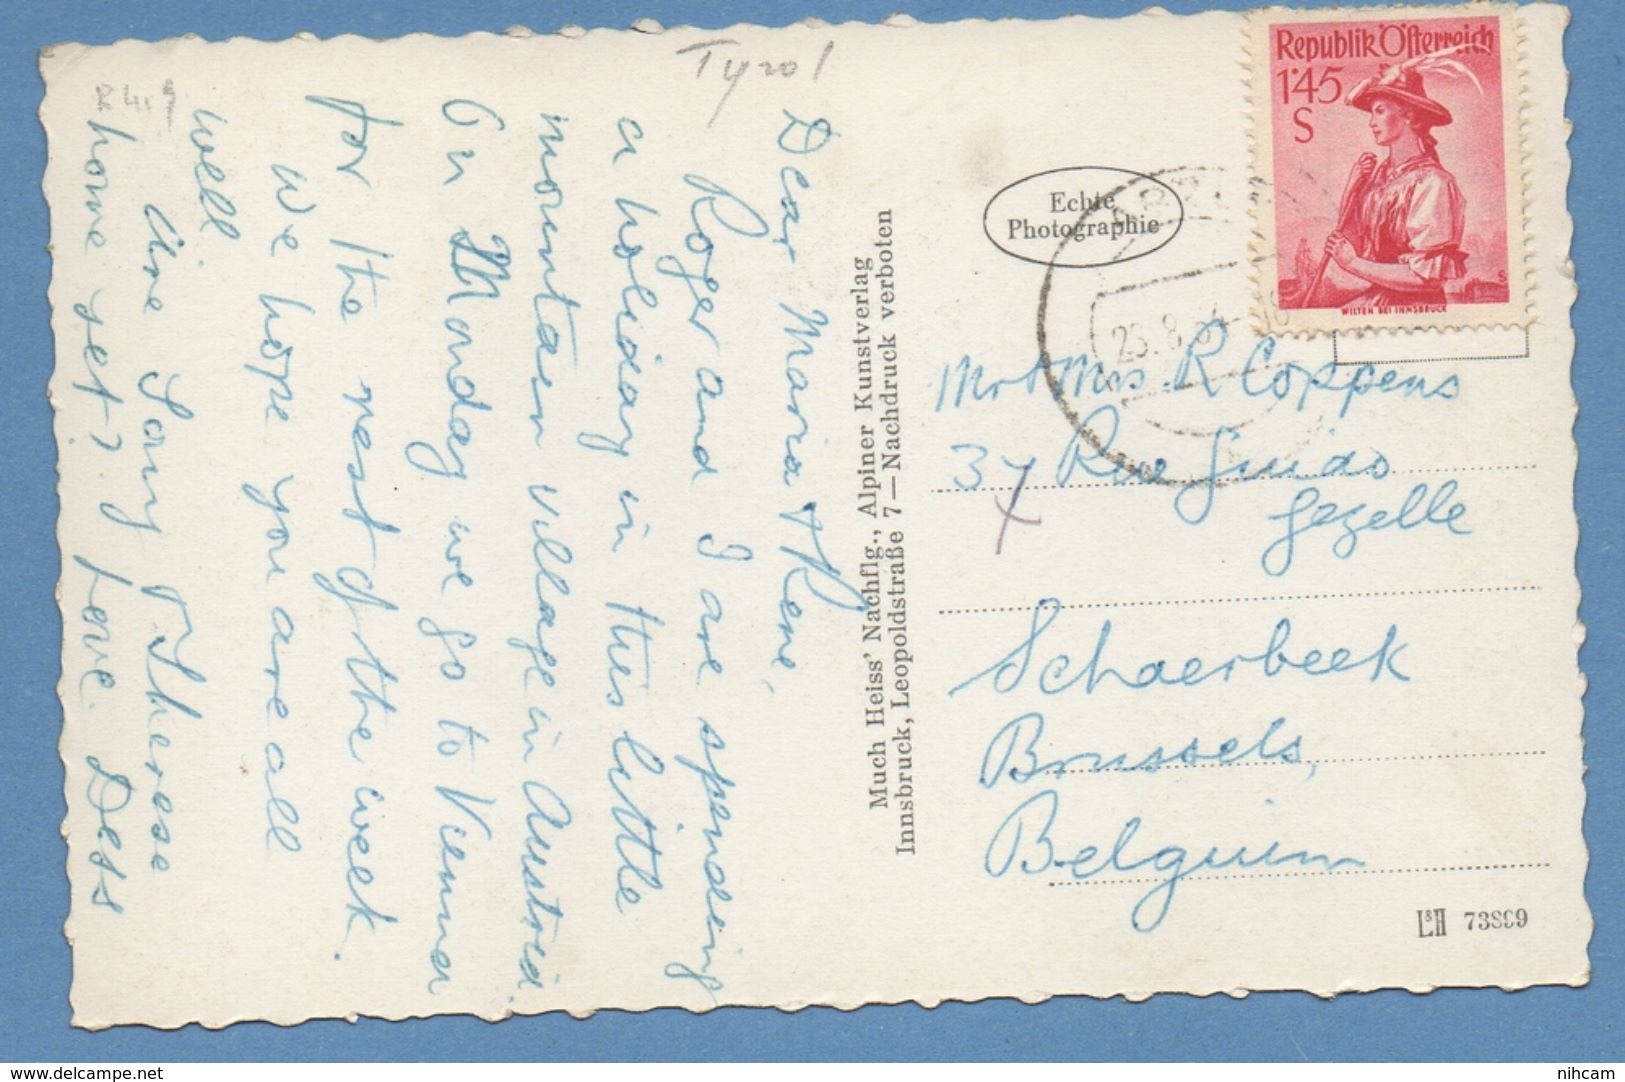 Tyrol
Dear Maria & Rene,
Roger and I are spending
a holiday in this little
mountain village in Austria.
On Monday we go to Vienna
for the rest of the week.
We hope you are all
well
Are Sony & Therese
home yet? Love Dess
Echte
Photographie
Much Heiss' Nachflg., Alpiner Kunstverlag
Innsbruck, Leopoldstraße 7 — Nachdruck verboten
Republik Österreich
1'45
S
WILTEN BEI INNSBRUCK
23.8.
Mr & Mrs R Coppens
37 Rue Guido
Gezelle
Schaerbeek
Brussels,
Belguim
L&H 73899
www.delcampe.net
nihcam